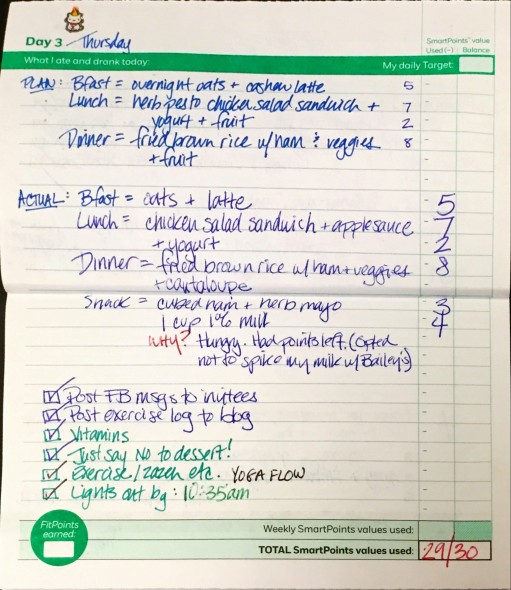 Day 3 Thursday
SmartPoints™ value
Used (-) Balance
What I ate and drank today:
My daily Target:
PLAN: Bfast = overnight oats + cashew latte 5
Lunch = herb pesto chicken salad sandwich + 7
yogurt + fruit 2
Dinner = fried brown rice w/ham & veggies 8
+ fruit
ACTUAL: Bfast = oats + latte 5
Lunch = chicken salad sandwich + applesauce 7
+ yogurt 2
Dinner = fried brown rice w/ ham + veggies 8
+ cantaloupe
Snack = cubed ham + herb mayo 3
1 cup 1% milk 4
Why? Hungry. Had points left. (Opted
not to spike my milk w/ Bailey's)
Post FB msgs to invitees
Post exercise log to blog
Vitamins
Just say NO to dessert!
Exercise / zazen etc. YOGA FLOW
Lights out by: 10:35am
FitPoints
earned:
Weekly SmartPoints values used:
TOTAL SmartPoints values used: 29/30